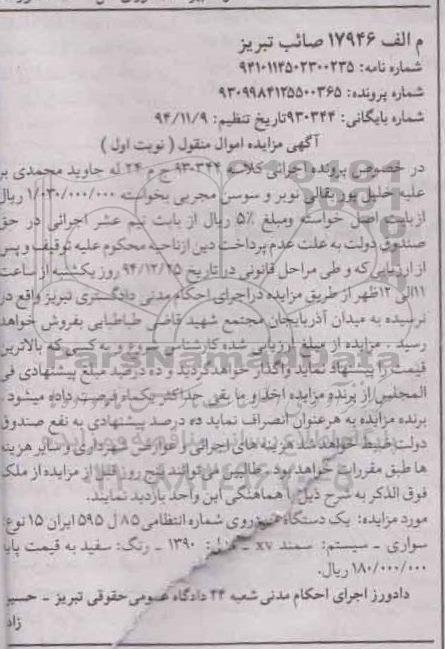 م الف ۱۷۹۴۶ صائب تبریز
شماره نامه: ۹۴۱۰۱۱۴۵۰۲۳۰۰۲۳۵
شماره پرونده: ۹۳۰۹۹۸۴۱۲۵۵۰۰۳۶۵
شماره بایگانی: ۹۳۰۳۴۴تاریخ تنظیم: ۹۴/۱۱/۹
آگهی مزایده اموال منقول ( نوبت اول )
در خصوص پرونده اجرائی کلاسه ۹۳۰۳۴۴ ج م ۲۴ له جاوید محمدی بر
علیه خلیل پور بقالی نوبر و سوسن مجربی بخواسته ۱/۰۳۰/۰۰۰/۰۰۰ ریال
ازبابت اصل خواسته ومبلغ ۵٪ ریال از بابت نیم عشر اجرائی در حق
صندوق دولت به علت عدم پرداخت دین ازناحیه محکوم علیه توقیف و پس
از ارزیابی که و طی مراحل قانونی در تاریخ ۹۴/۱۲/۲۵ روز یکشنبه از ساعت
۱۱الی ۱۲ظهر از طریق مزایده دراجرای احکام مدنی دادگستری تبریز واقع در
نرسیده به میدان آذربایجان مجتمع شهید قاضی طباطبایی بفروش خواهد
رسید . مزایده از مبلغ ارزیابی شده کارشناسی شروع و به کسی که بالاترین
قیمت را پیشنهاد نماید واگذار خواهدگردید و ده درصد مبلغ پیشنهادی فی
المجلس از برنده مزایده اخذ و ما بقی حداکثر یکماه فرصت داده میشود .
برنده مزایده به هرعنوان انصراف نماید ده درصد پیشنهادی به نفع صندوق
دولت ضبط خواهد شد هزینه های اجرائی و عوارض شهرداری و سایر هزینه
ها طبق مقررات خواهد بود . طالبین می توانند پنج روز قبل از مزایده از ملک
فوق الذکر به شرح ذیل با هماهنگی این واحد بازدید نمایند.
مورد مزایده: یک دستگاه خودروی شماره انتظامی ۸۵ ل ۵۹۵ ایران ۱۵ نوع:
سواری _ سیستم: سمند xv _ مدل: ۱۳۹۰ _ رنگ: سفید به قیمت پایه
۱۸۰/۰۰۰/۰۰۰ ریال.
دادورز اجرای احکام مدنی شعبه ۲۴ دادگاه عمومی حقوقی تبریز _ حسین
زاد
ParsNamadData